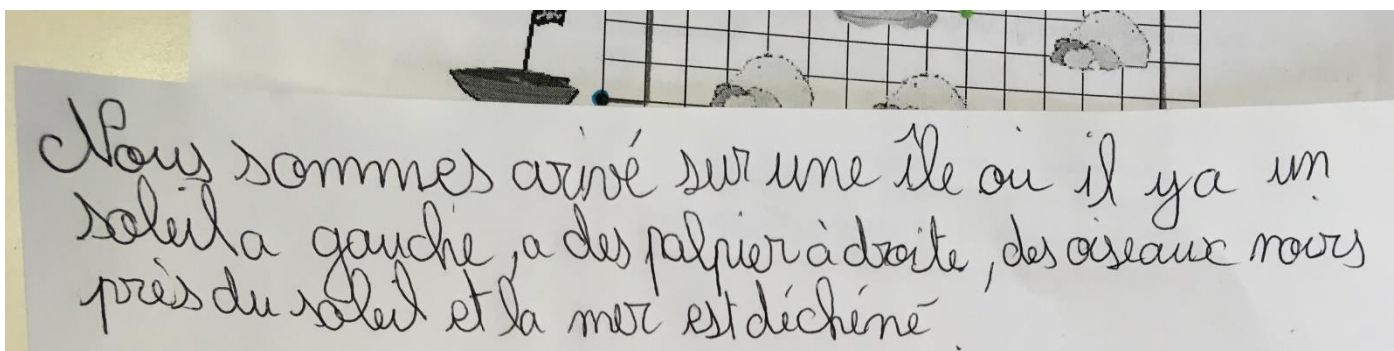 Nous sommes arivé sur une île où il y a un
soleil a gauche, a des palpier à droite, des oiseaux noirs
près du soleil et la mer est déchéné.